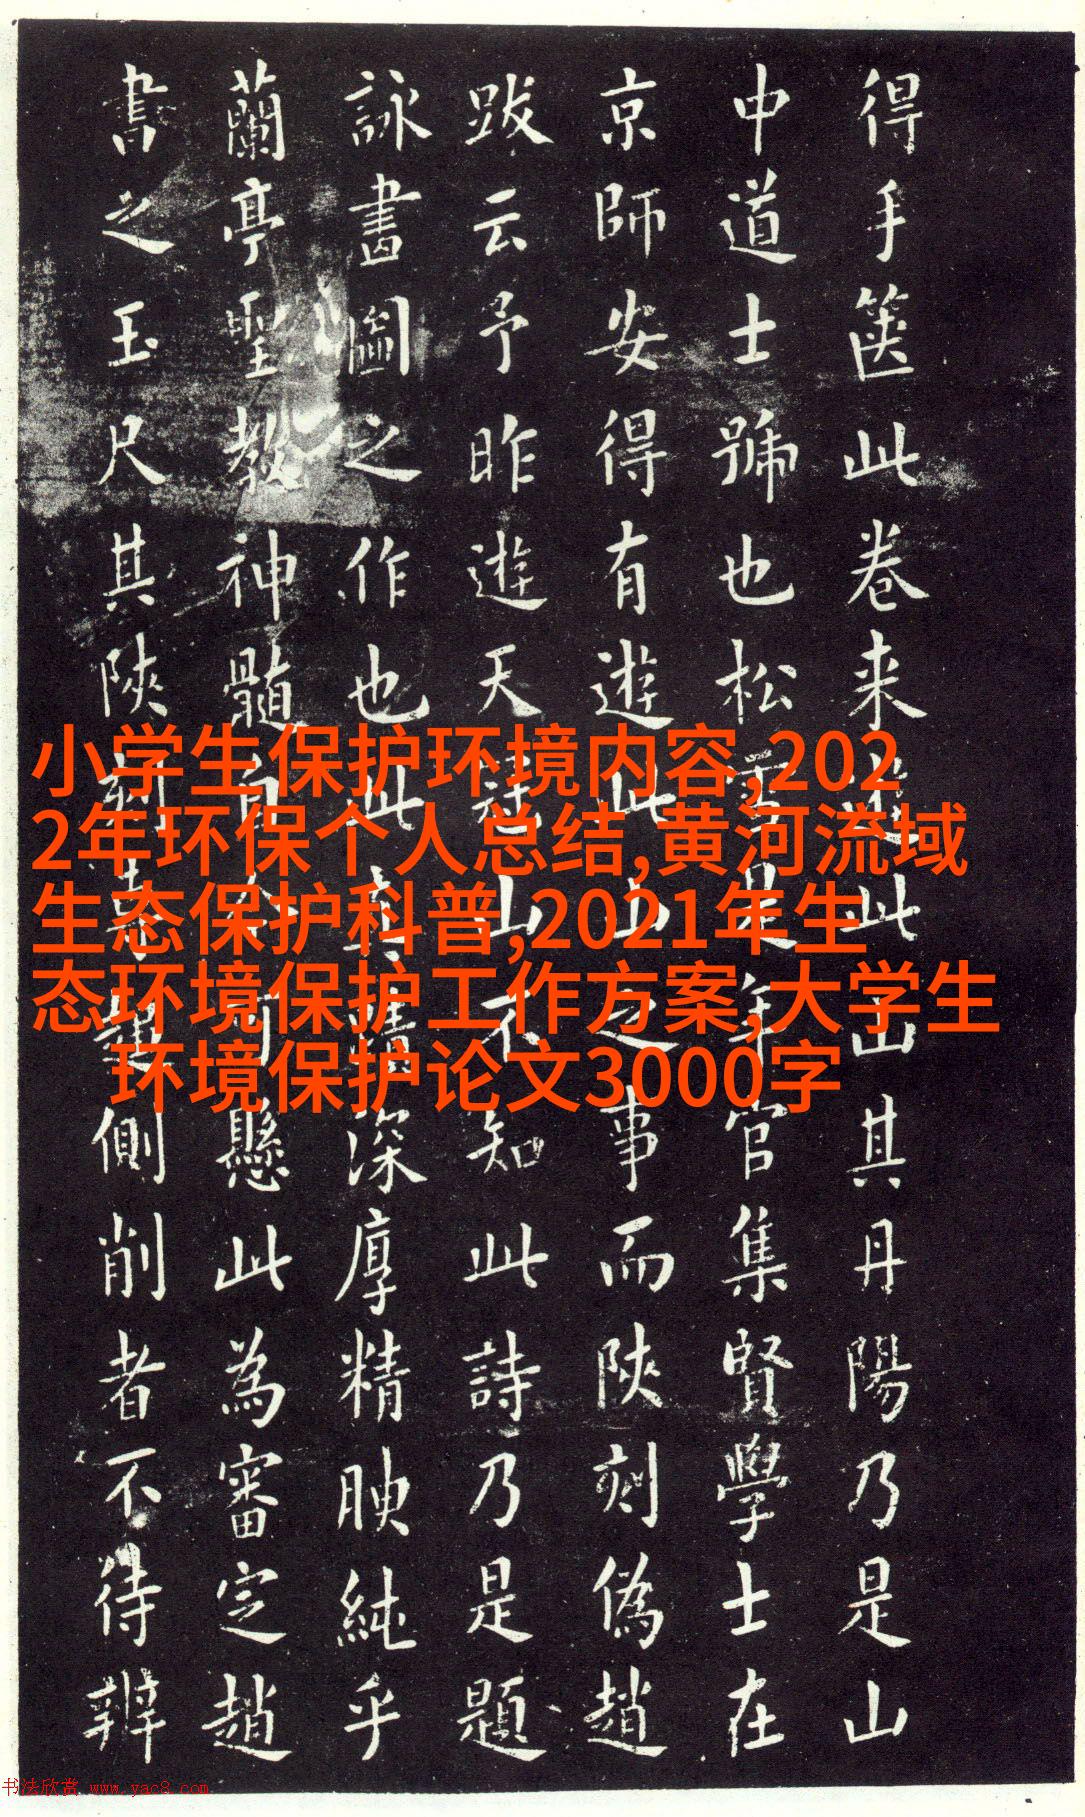 得手箧此卷来遊此山其丹陽乃是山
中道士號也松雪是年官集賢學士在
京師安得有遊此山之事而陕刻偽趙
跋云予昨遊天山不知此詩乃是題
詠書圖之作也此真深厚精腴純乎
蘭亭聖教神髓自可懸此為審定趙
書之玉尺其陕刻側削者不待辨
小学生保护环境内容,202
2年环保个人总结,黄河流域
生态保护科普,2021年生
态环境保护工作方案,大学生
环境保护论文3000字
书法欣赏 www.yac8.com